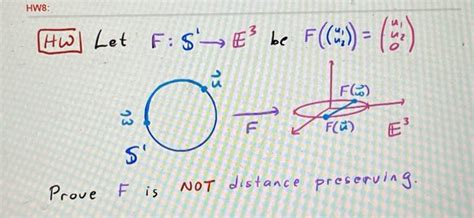 HW8:
HW Let F: S¹ → E³ be F((u₁ u₂)) = (u₁ u₂ 0)
u⃗
w⃗
S¹
F
F(w⃗)
F(u⃗)
E³
Prove F is NOT distance preserving.